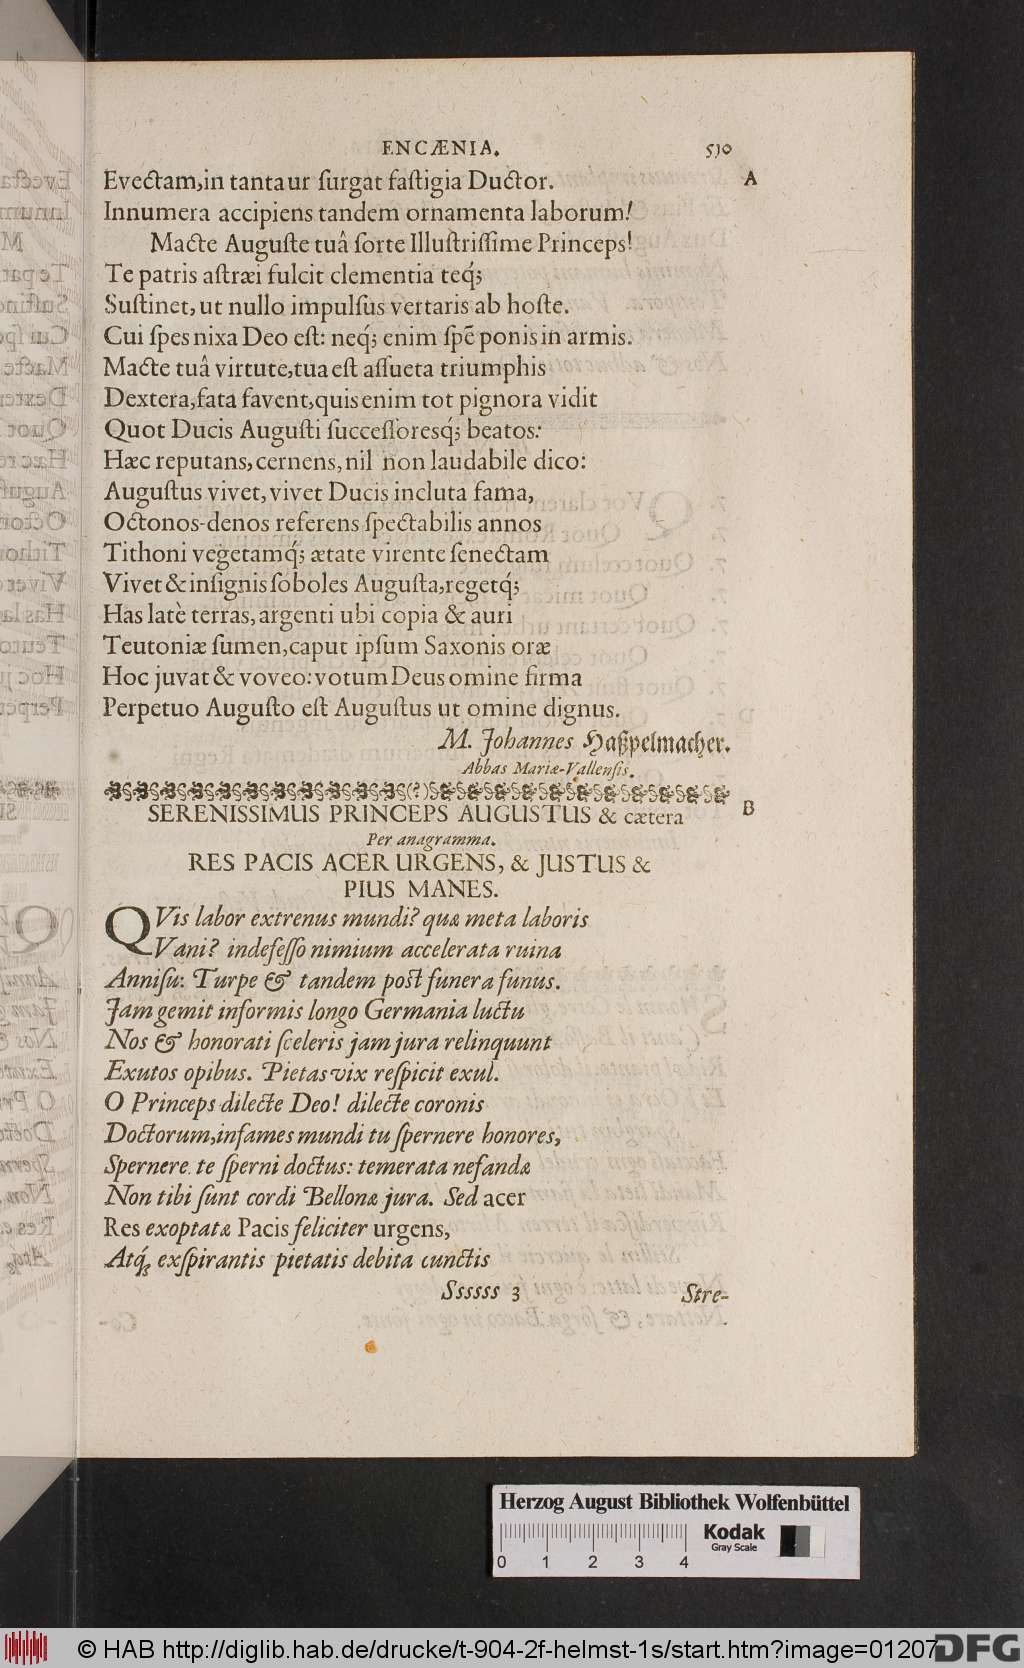 ENCÆNIA. 530
Evectam, in tanta ur ſurgat faſtigia Ductor. A
Innumera accipiens tandem ornamenta laborum!
Macte Auguſte tuâ ſorte Illuſtriſſime Princeps!
Te patris aſtræi fulcit clementia teq́;
Suſtinet, ut nullo impulſus vertaris ab hoſte.
Cui ſpes nixa Deo eſt: neq́; enim ſpẽ ponis in armis.
Macte tuâ virtute, tua eſt aſſueta triumphis
Dextera, fata favent, quis enim tot pignora vidit
Quot Ducis Auguſti ſucceſſoresq́; beatos:
Hæc reputans, cernens, nil non laudabile dico:
Auguſtus vivet, vivet Ducis incluta fama,
Octonos-denos referens ſpectabilis annos
Tithoni vegetamq́; ætate virente ſenectam
Vivet & inſignis ſoboles Auguſta, regetq́;
Has latè terras, argenti ubi copia & auri
Teutoniæ ſumen, caput ipſum Saxonis oræ
Hoc juvat & voveo: votum Deus omine firma
Perpetuo Auguſto eſt Auguſtus ut omine dignus.
M. Johannes Haßpelmacher.
Abbas Mariæ-Vallenſis.
(?)
SERENISSIMUS PRINCEPS AUGUSTUS & cætera B
Per anagramma.
RES PACIS ACER URGENS, & JUSTUS &
PIUS MANES.
QVis labor extrenus mundi? quæ meta laboris
Vani? indefeſſo nimium accelerata ruina
Anniſu: Turpe & tandem poſt funera funus.
Jam gemit informis longo Germania luctu
Nos & honorati ſceleris jam jura relinquunt
Exutos opibus. Pietas vix reſpicit exul.
O Princeps dilecte Deo! dilecte coronis
Doctorum, infames mundi tu ſpernere honores,
Spernere te ſperni doctus: temerata nefandæ
Non tibi ſunt cordi Bellonæ jura. Sed acer
Res exoptatæ Pacis feliciter urgens,
Atq́; exſpirantis pietatis debita cunctis
Ssssss 3 Stre-
Herzog August Bibliothek Wolfenbüttel
0 1 2 3 4
Kodak
Gray Scale
© HAB http://diglib.hab.de/drucke/t-904-2f-helmst-1s/start.htm?image=01207
DFG